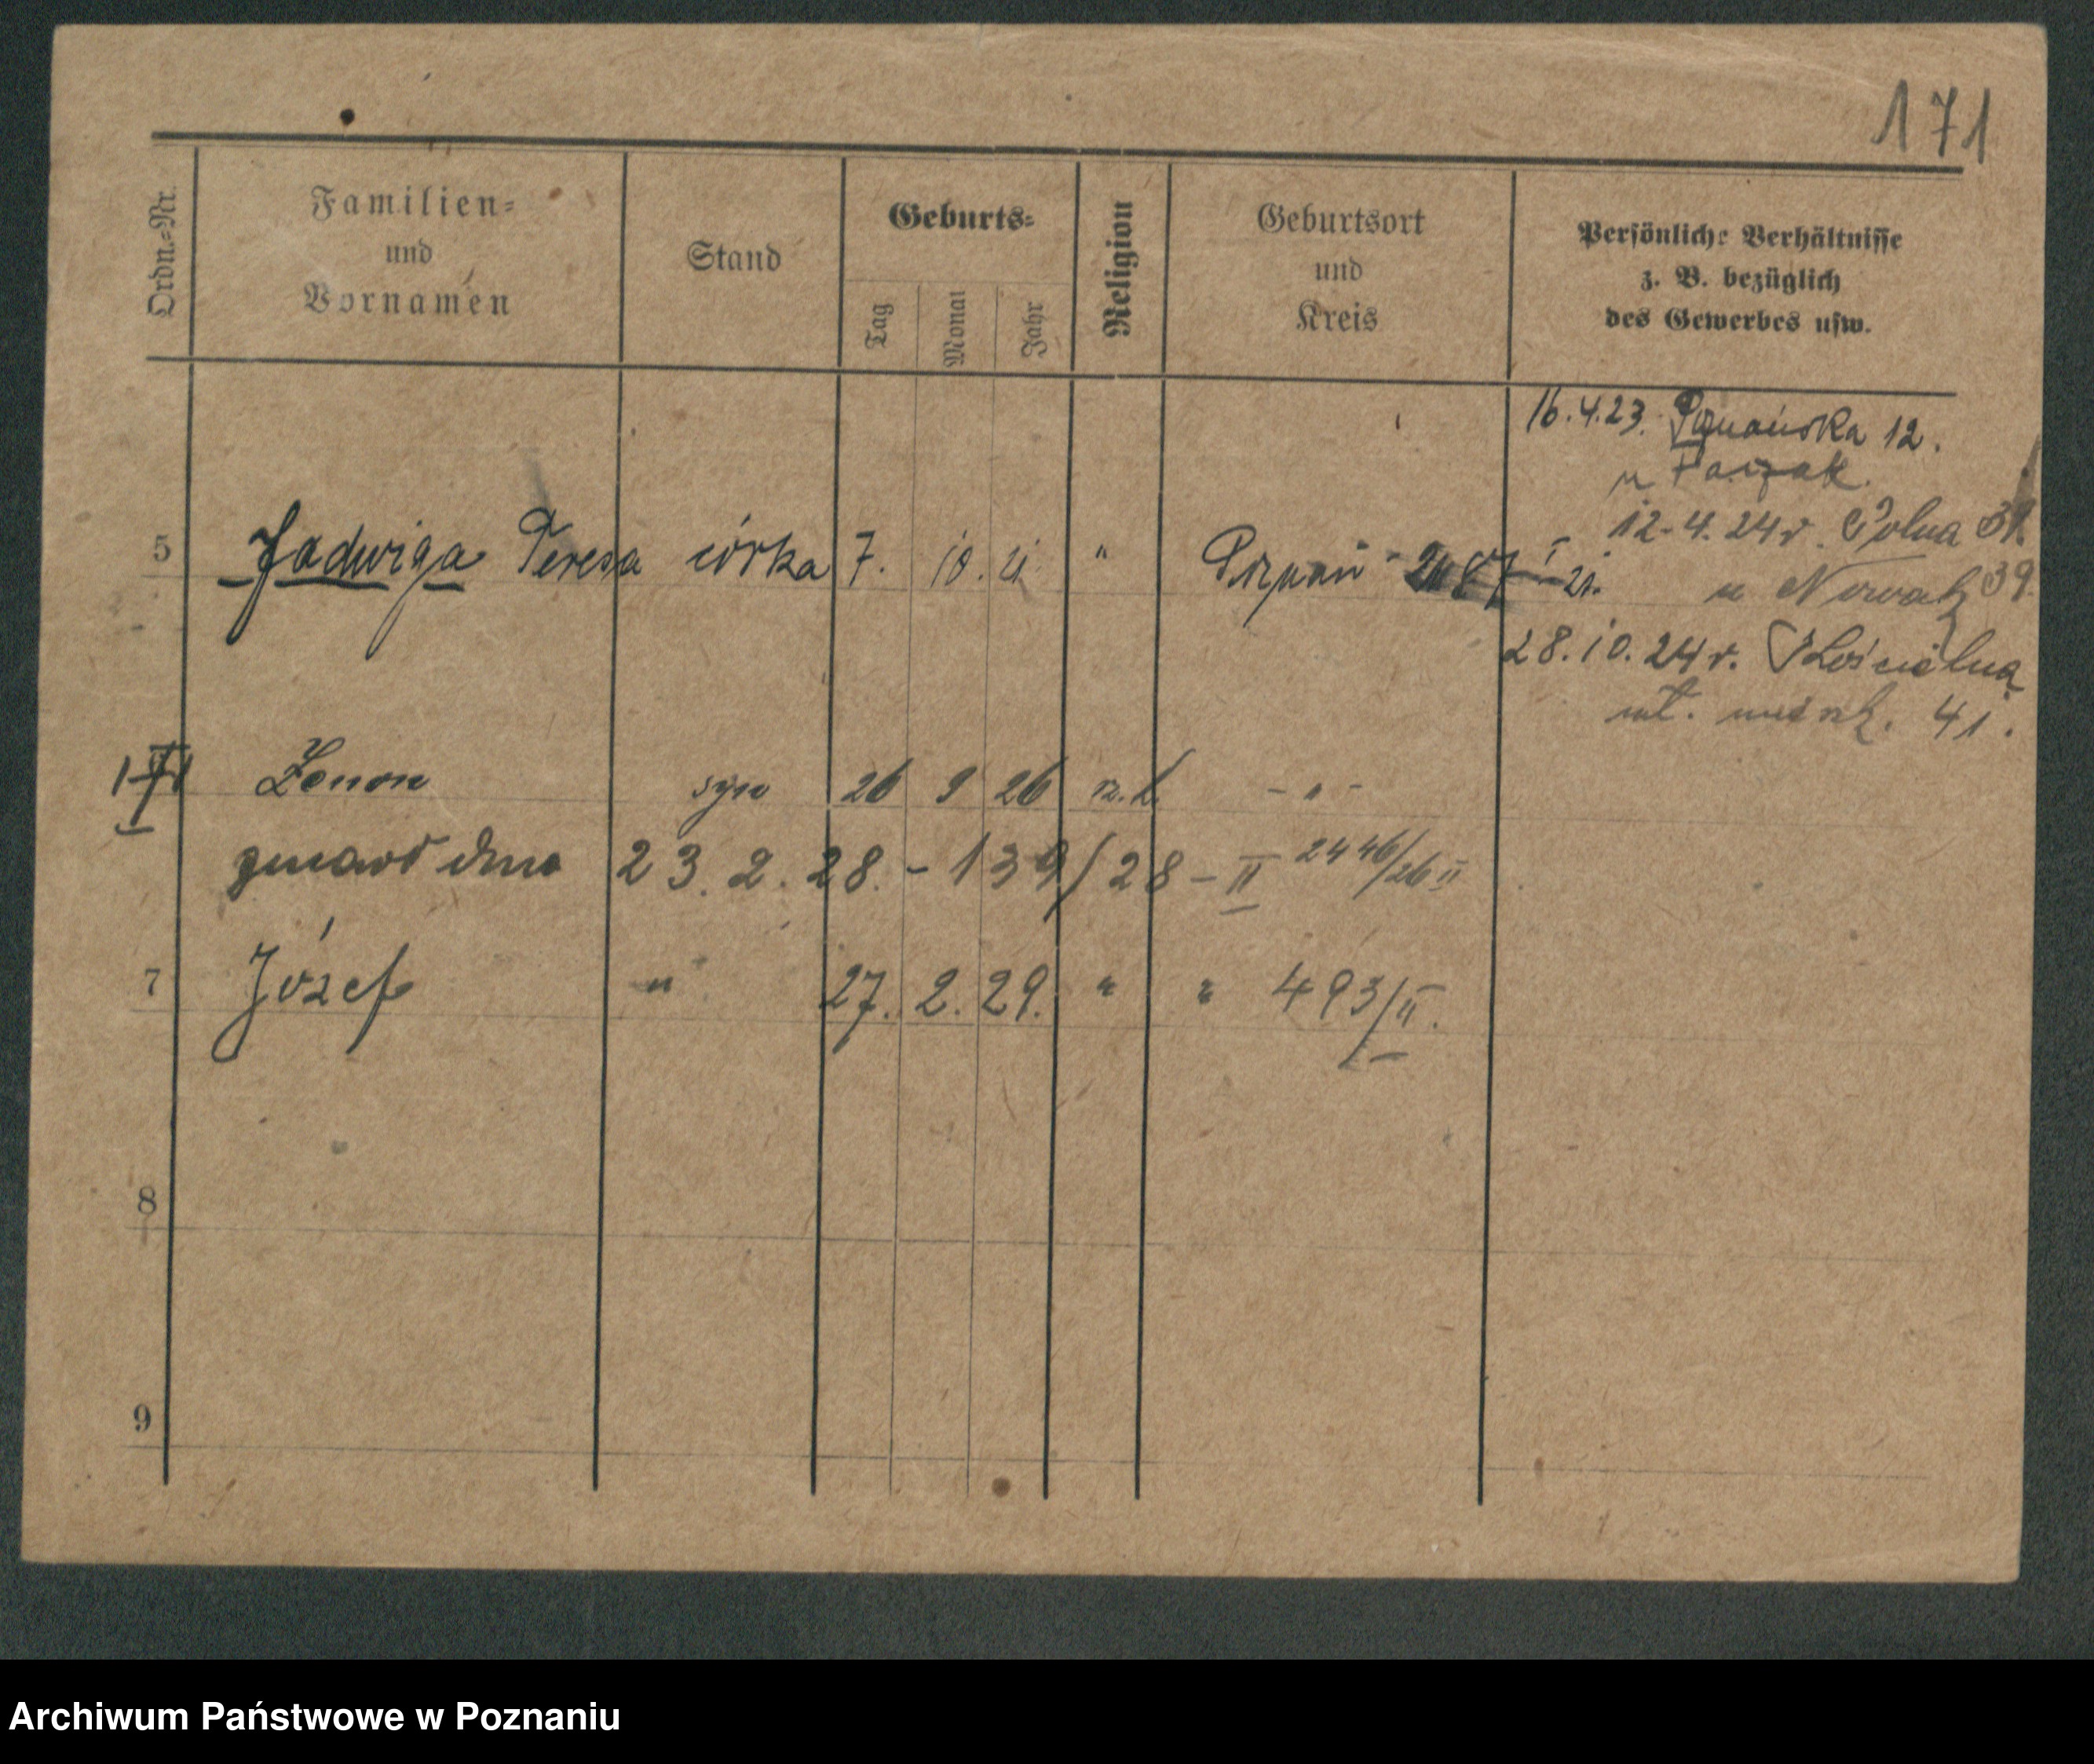 171
Ordn.=Nr.
Familien=
und
Vornamen
Stand
Geburts=
Tag
Monat
Jahr
Religion
Geburtsort
und
Kreis
Persönliche Verhältnisse
z. B. bezüglich
des Gewerbes usw.
16.4.23. Poznańska 12.
12.4.24 r. Polna
u Nowak 39.
5 Jadwiga Teresa córka 7. 10. 21. " Poznań 21.
28.10.24 r. Kościelna
41.
Zenon syn 26 9 26 rz. k. - " -
zmarł dnia 23. 2. 28. - 139/28 - II 2446/26 II
7 Józef " 27. 2. 29. " " 493/II.
8
9
Archiwum Państwowe w Poznaniu